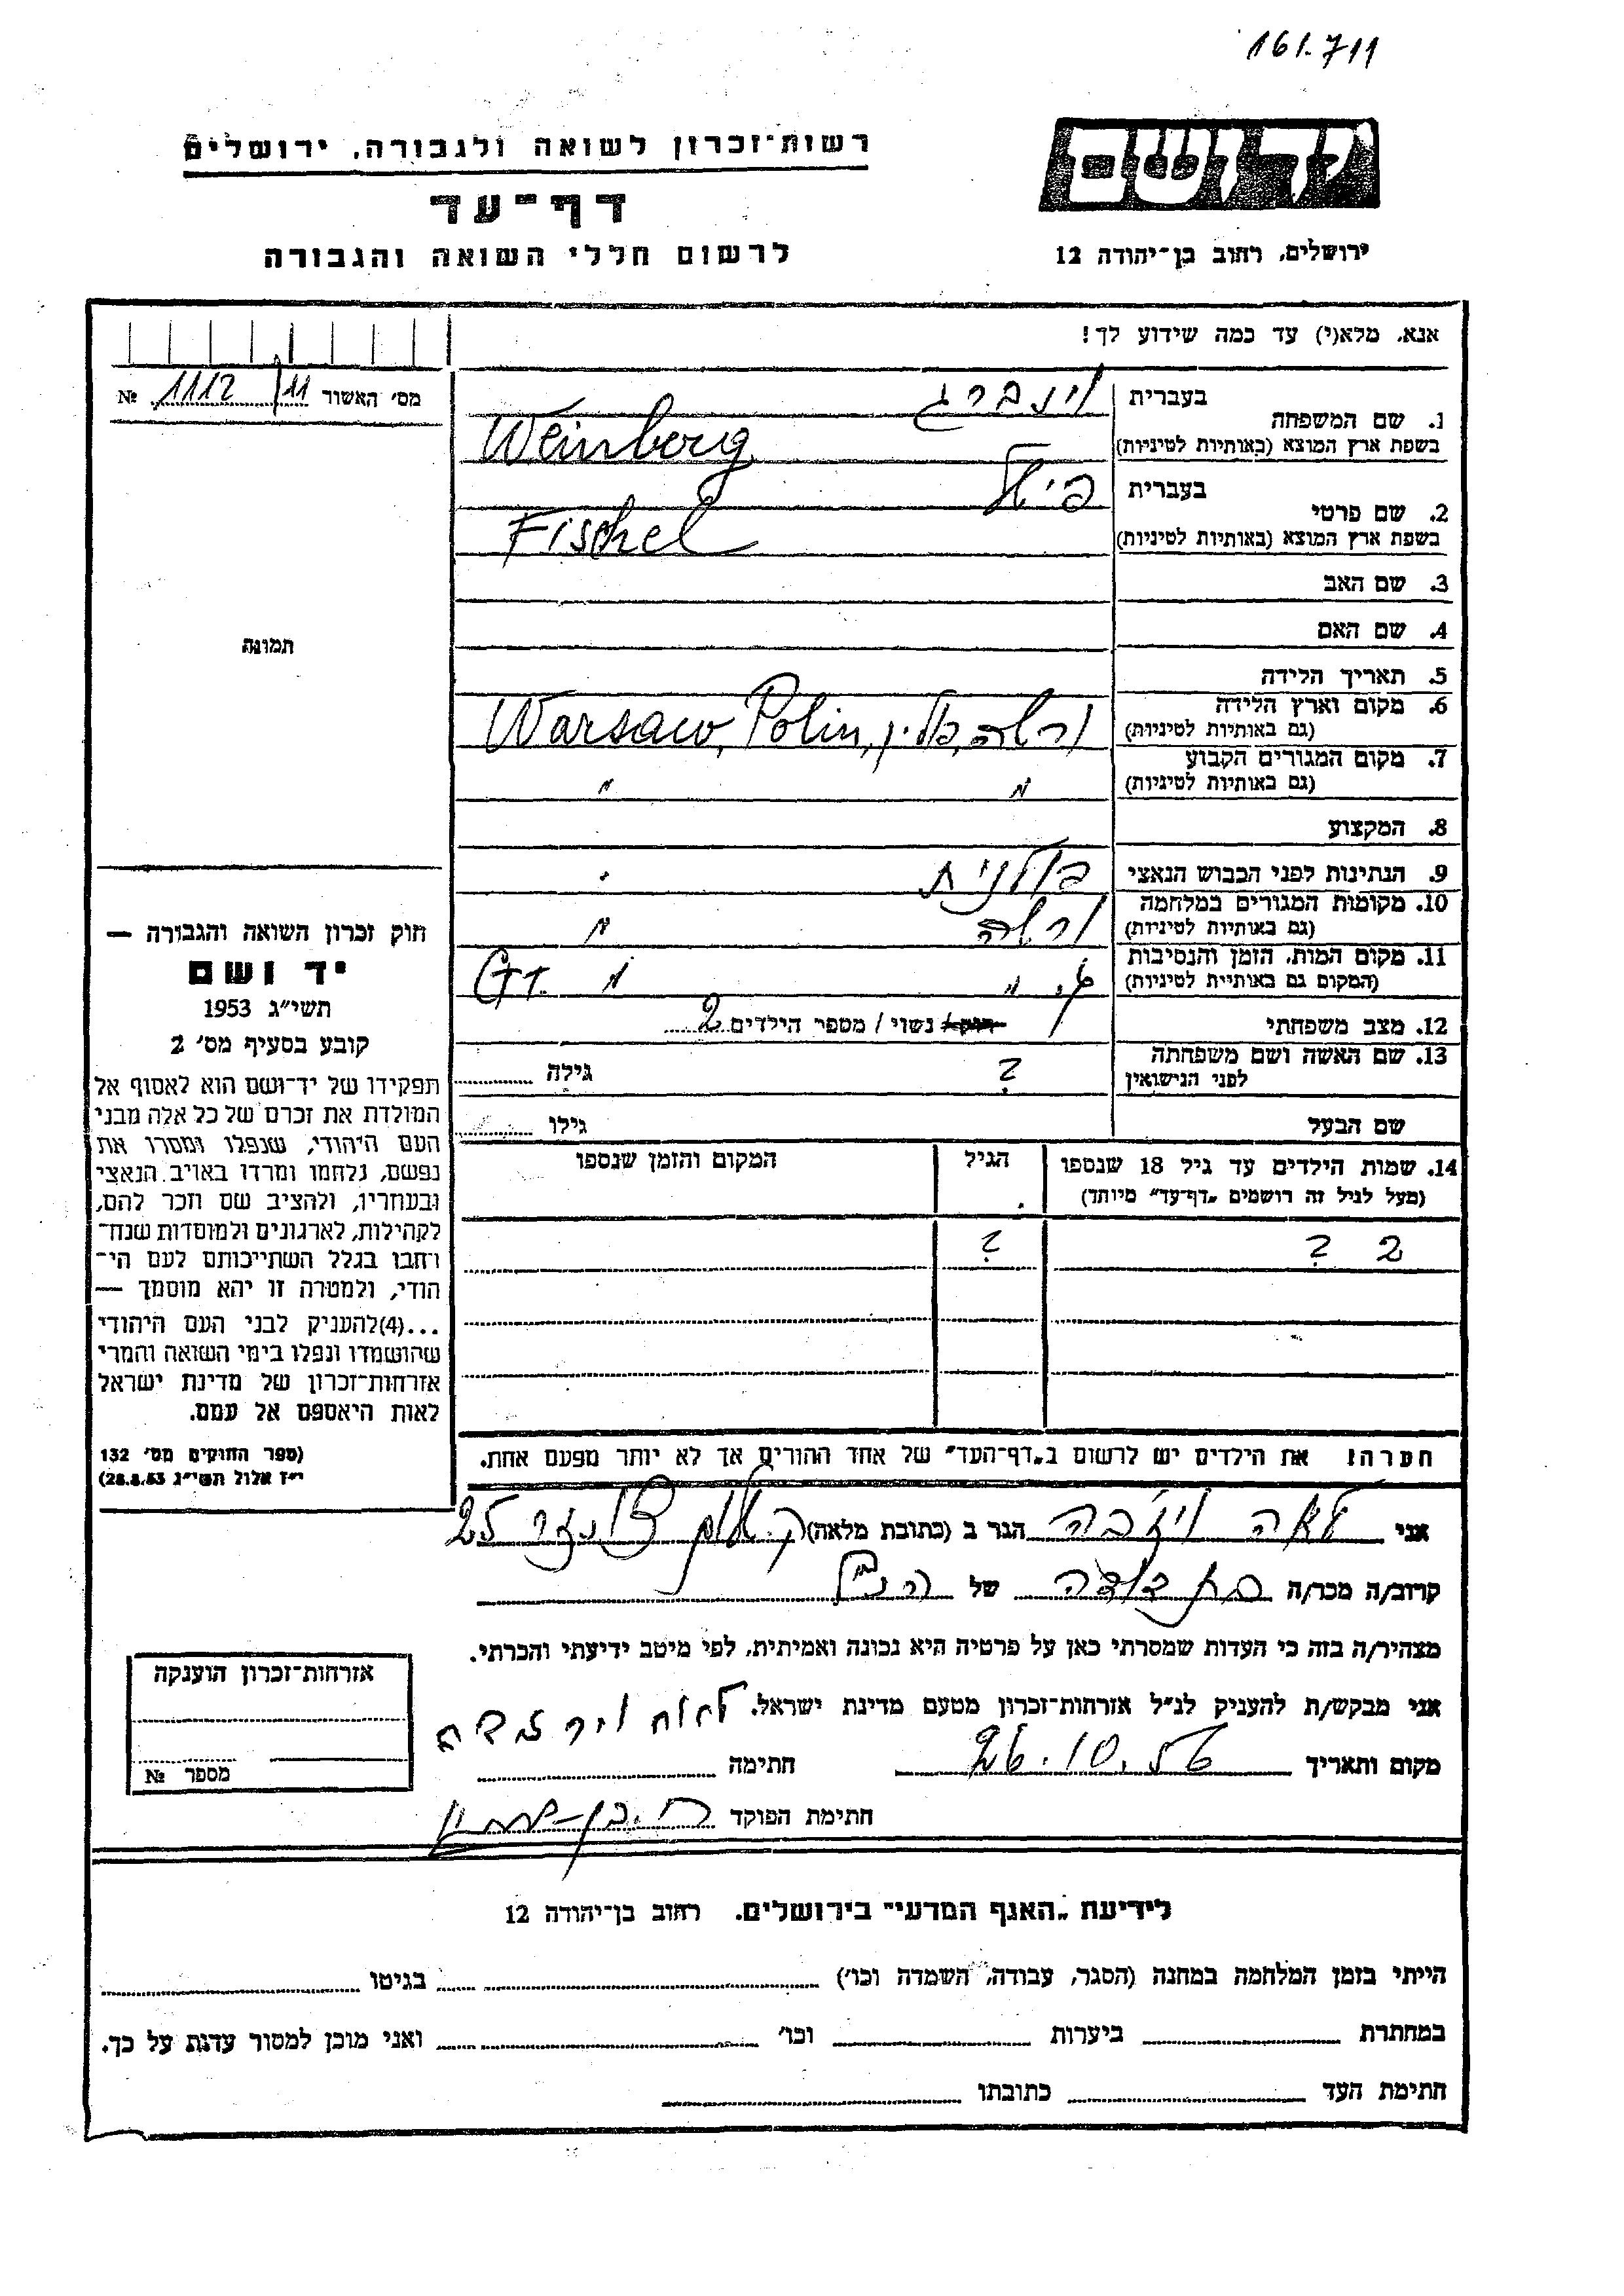 161.711
רשות־זכרון לשואה ולגבורה, ירושלים
יד ושם
דף־עד
לרשום חללי השואה והגבורה
ירושלים, רחוב בן־יהודה 12
אנא, מלא(י) עד כמה שידוע לך!
מס׳ האשור 11/1112 №
תמונה
1. שם המשפחה
בעברית וינברג
בשפת ארץ המוצא (באותיות לטיניות) Weinberg
2. שם פרטי
בעברית פישל
בשפת ארץ המוצא (באותיות לטיניות) Fischel
3. שם האב
4. שם האם
5. תאריך הלידה
6. מקום וארץ הלידה
(גם באותיות לטיניות) ורשה, פולין, Warsaw, Polin
7. מקום המגורים הקבוע
(גם באותיות לטיניות) " "
8. המקצוע
9. הנתינות לפני הכבוש הנאצי פולנית
10. מקומות המגורים במלחמה
(גם באותיות לטיניות) ורשה "
11. מקום המות, הזמן והנסיבות
(המקום גם באותיית לטיניות) ג. " "
12. מצב משפחתי רווק / נשוי / מספר הילדים 2
13. שם האשה ושם משפחתה
לפני הנישואין ? גילה
שם הבעל גילו
14. שמות הילדים עד גיל 18 שנספו הגיל המקום והזמן שנספו
(מעל לגיל זה רושמים „דף־עד" מיוחד)
2 ? ?
הערה! את הילדים יש לרשום ב„דף־העד" של אחד ההורים אך לא יותר מפעם אחת.
חוק זכרון השואה והגבורה —
יד ושם
תשי״ג 1953
קובע בסעיף מס׳ 2
תפקידו של יד־ושם הוא לאסוף אל
המולדת את זכרם של כל אלה מבני
העם היהודי, שנפלו ומסרו את
נפשם, נלחמו ומרדו באויב הנאצי
ובעוזריו, ולהציב שם וזכר להם,
לקהילות, לארגונים ולמוסדות שנח־
רבו בגלל השתייכותם לעם הי־
הודי, ולמטרה זו יהא מוסמך —
...(4)להעניק לבני העם היהודי
שהושמדו ונפלו בימי השואה והמרי
אזרחות־זכרון של מדינת ישראל
לאות היאספם אל עמם.
(ספר החוקים מס׳ 132
י״ז אלול תשי״ג 28.8.53)
אני לאה הגר ב (כתובת מלאה) ק. שלום 25
קרוב/ה מכר/ה בת דודה של הנ״ל
מצהיר/ה בזה כי העדות שמסרתי כאן על פרטיה היא נכונה ואמיתית, לפי מיטב ידיעתי והכרתי.
אני מבקש/ת להעניק לנ״ל אזרחות־זכרון מטעם מדינת ישראל.
מקום ותאריך 26.10.56 חתימה
חתימת הפוקד
אזרחות־זכרון הוענקה
מספר №
לידיעת „האגף המדעי״ בירושלים, רחוב בן־יהודה 12
הייתי בזמן המלחמה במחנה (הסגר, עבודה, השמדה וכו׳) בגיטו
במחתרת ביערות וכו׳ ואני מוכן למסור עדות על כך.
חתימת העד כתובתו